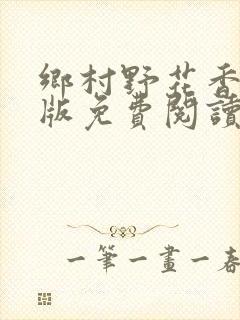 鄉村野花香
版免費閱讀
一筆一畫一春